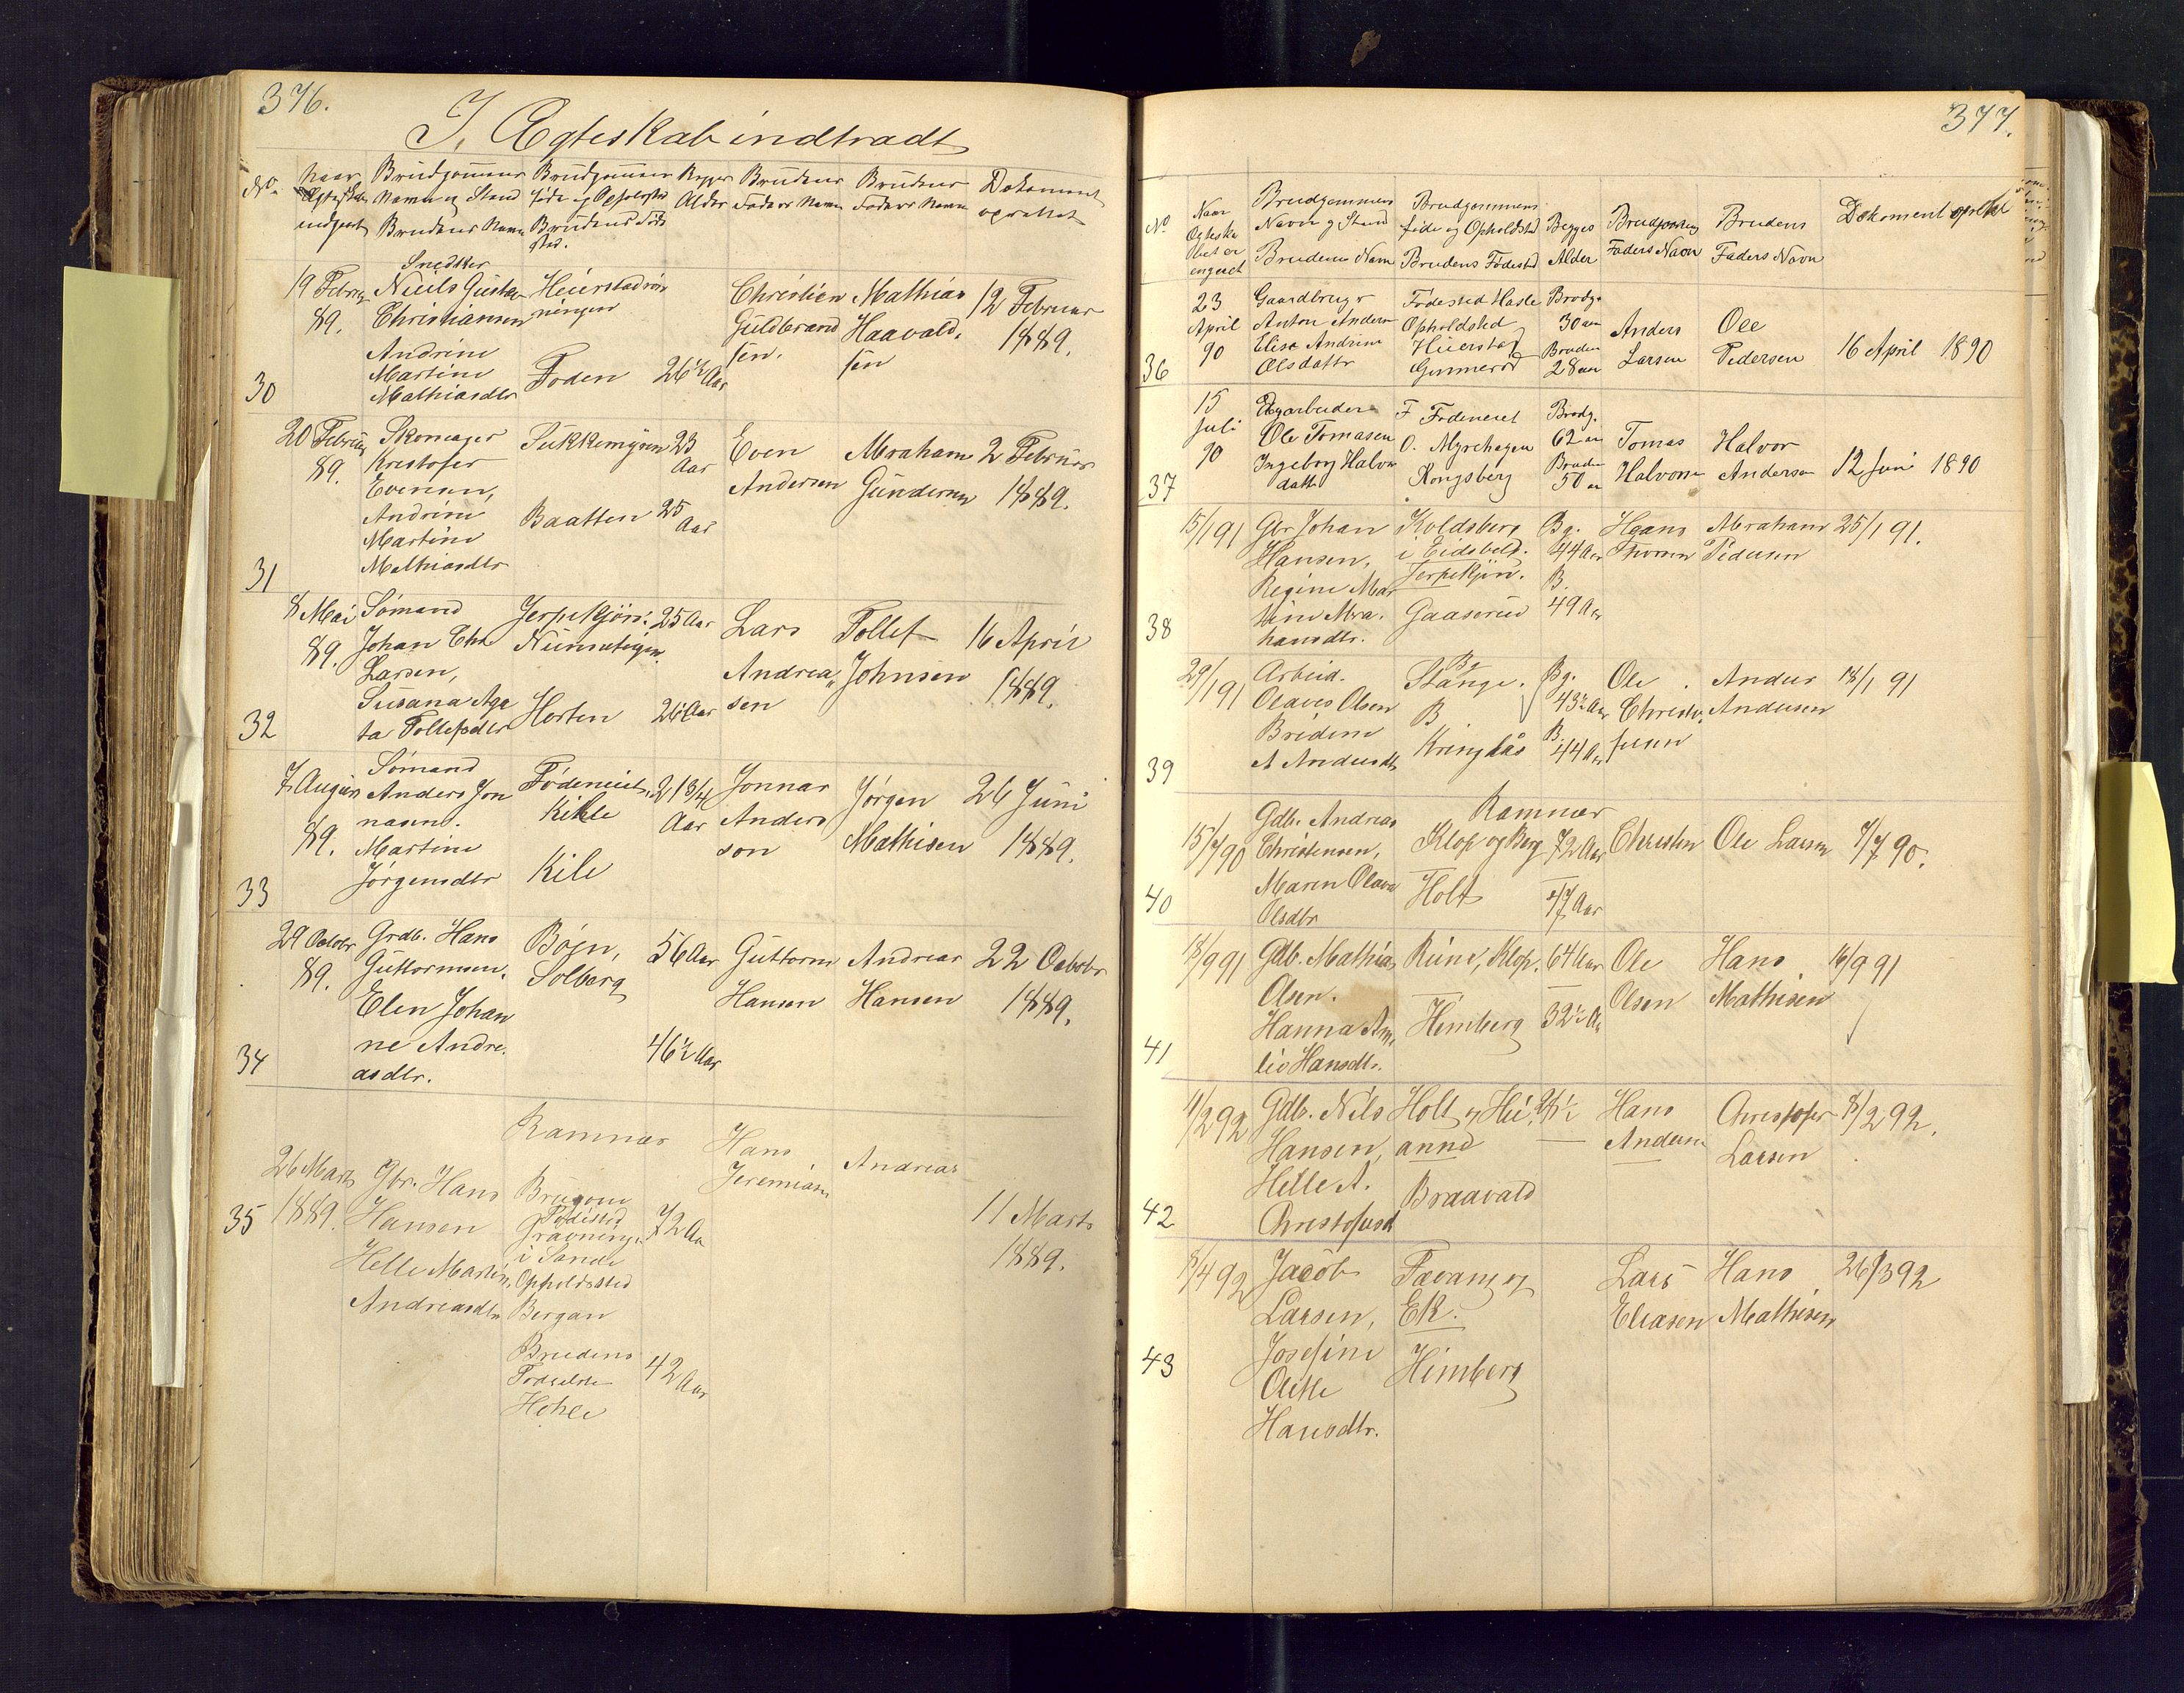 376.
I, Ægteskab indtradt
No. Naar Ægteskabet indgaaet
Brudgommens Navn og Stand Brudens Navn
Brudgommens føde og Opholdsted Brudens Fødested.
Begges Alder
Brudens Faders Navn
Brudens Faders Navn
Dokument oprettet
30
19 Februar
89.
Snedker
Niels Gustav
Christiansen
Andrine
Martine
Mathiasdtr
Foden
26½ Aar
Christian
Guldbrand
sen.
Mathias
Haavald.
sen
12 Februar
1889.
31
20 Februar
89.
Skomager
Kristofer
Evensen,
Andrine
Martine
Mathiasdtr
Sukkemyren
Baatten
23
Aar
25
Aar
Even
Andersen
Abraham
Gundersen
2 Februar
1889.
32
8 Mai
89.
Sømand
Johan
Larsen,
Susana Aga
ta Tollefsdtr
Jerpekjøn:
Horten
25 Aar
26 Aar
Lars
Andrea
sen
Tollef
Johnsen
16 April
1889.
33
7 August
89.
Sømand
Anders Jon
nasen.
Martine
Jørgensdtr
Fødeneiet,
Kihle
Kile
21 3/4
Aar
Jonnas
Anders
son
Jørgen
Mathisen
26 Juni
1889.
34
29 October
89.
Grdb. Hans
Guttormsen.
Elen Johan
ne Andre.
asdtr.
Bøen,
Solberg
56 Aar
46½ Aar
Guttorm
Hansen
Andreas
Hansen
22 October
1889.
35
26 Marts
1889.
Gbr. Hans
Hansen
Helle Martin
Andreasdtr
Ramnæs
Brugom
Fødested
Gravning
i Sande
Opholdssted
Bergan
Brudens
Fødselste
Hohle
72 Aa
42 Aar
Hans
Jeremias
Andreas
11 Marts
1889.
377.
No
Naar Ægteska bet er engaaet
Brudgommens Navn og Stand Brudens Navn
Brudgommens føde og Opholdsted Brudens Fødested
Begges Alder
Brudgommens Faders Navn
Brudens Faders Navn
Dokument oprettet
36
23
April
90
Gaardbruger
Anton Anders
Elise Andrine
Olsdattr
Fødested Hasle
Opholdsted
Heierstad
Gunnerød
Brudg.
30 aar
Bruden
28 aar
Anders
Larsen
Ole
Pedersen
16 April 1890
37
15
Juli
90
Ole Tomasen
Ingeborg Halvor
datt
F Fødeneiet
O. Myrehagen
Kongsberg
Brudg.
62 aar
Bruden
50 aar
Tomas
Halvorsen
Halvor
Anderson
12 Juni 1890
38
15/1 91
Gbr Johan
Hansen,
Regine Mar
tine Abra.
hamsdtr.
Koldsberg
i Eidsbold.
Jerpekjøn.
Gaaserud
Bg.
44 Aar
B.
49 Aar
Haans
Thorsen
Abraham
Pedersen
25/1 91.
39
29/1 91
Arbeid.
Olaves Olsen
Brudene
A Andersdt
Bg
Stange.
B
Kringlås
Bg.
43½ Aar
B.
44 Aar
Ole
Christo.
fersen
Anders
Andersen
18/1 91
40
15/7 90
Gdb. Andreas
Christensen,
Maren Olava
Olsdtr
Ramnæs
Klop og Berg
Holt
72 Aar
47 Aar
Christen
Ole Larsen
7/7 90.
41
18/9 91
Gdb. Mathias
Olsen.
Hanna Am.
lie Hansdtr.
Rune, Klop.
Himberg
64 Aar
32½ A
Ole
Olsen
Hans
Mathisen
16/9 91
42
11/2 92
Gdb. Nils
Hansen,
Helle A.
Christofersd
Holt og Hei.
Braavald
Hans
Andersen
Christofer
Larsen
8/2 92.
43
8/4 92
Jacob
Larsen,
Josefine
Oletle
Hansdtr.
Tævang og
Ek.
Himberg
Lars
Eliasen
Hans
Mathisen
26/3 92